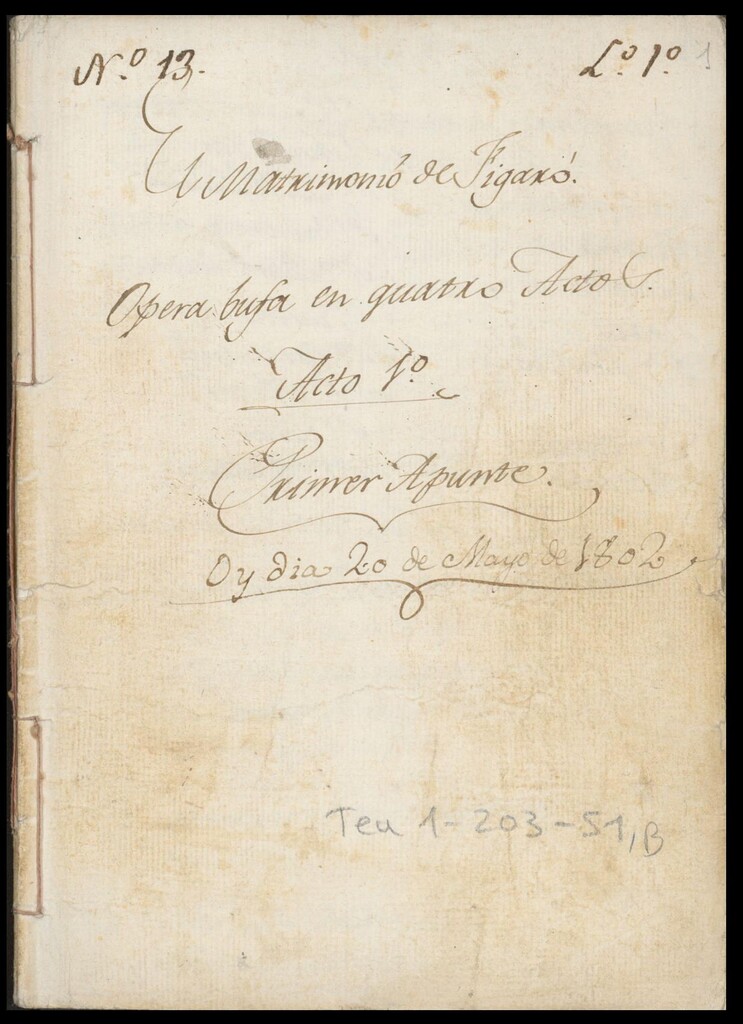 N.º 13.
L.º 1.º
1
El Matrimonio de Figaro.
Opera bufa en quatro Actos.
Acto 1.º
Primer Apunte.
Oy dia 20 de Mayo de 1802
Tea 1-203-51, B